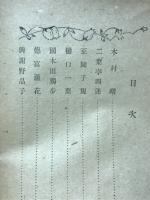 目次
木村曙
二葉亭四迷
正岡子規
樋口一葉
国木田独歩
徳富蘆花
与謝野晶子